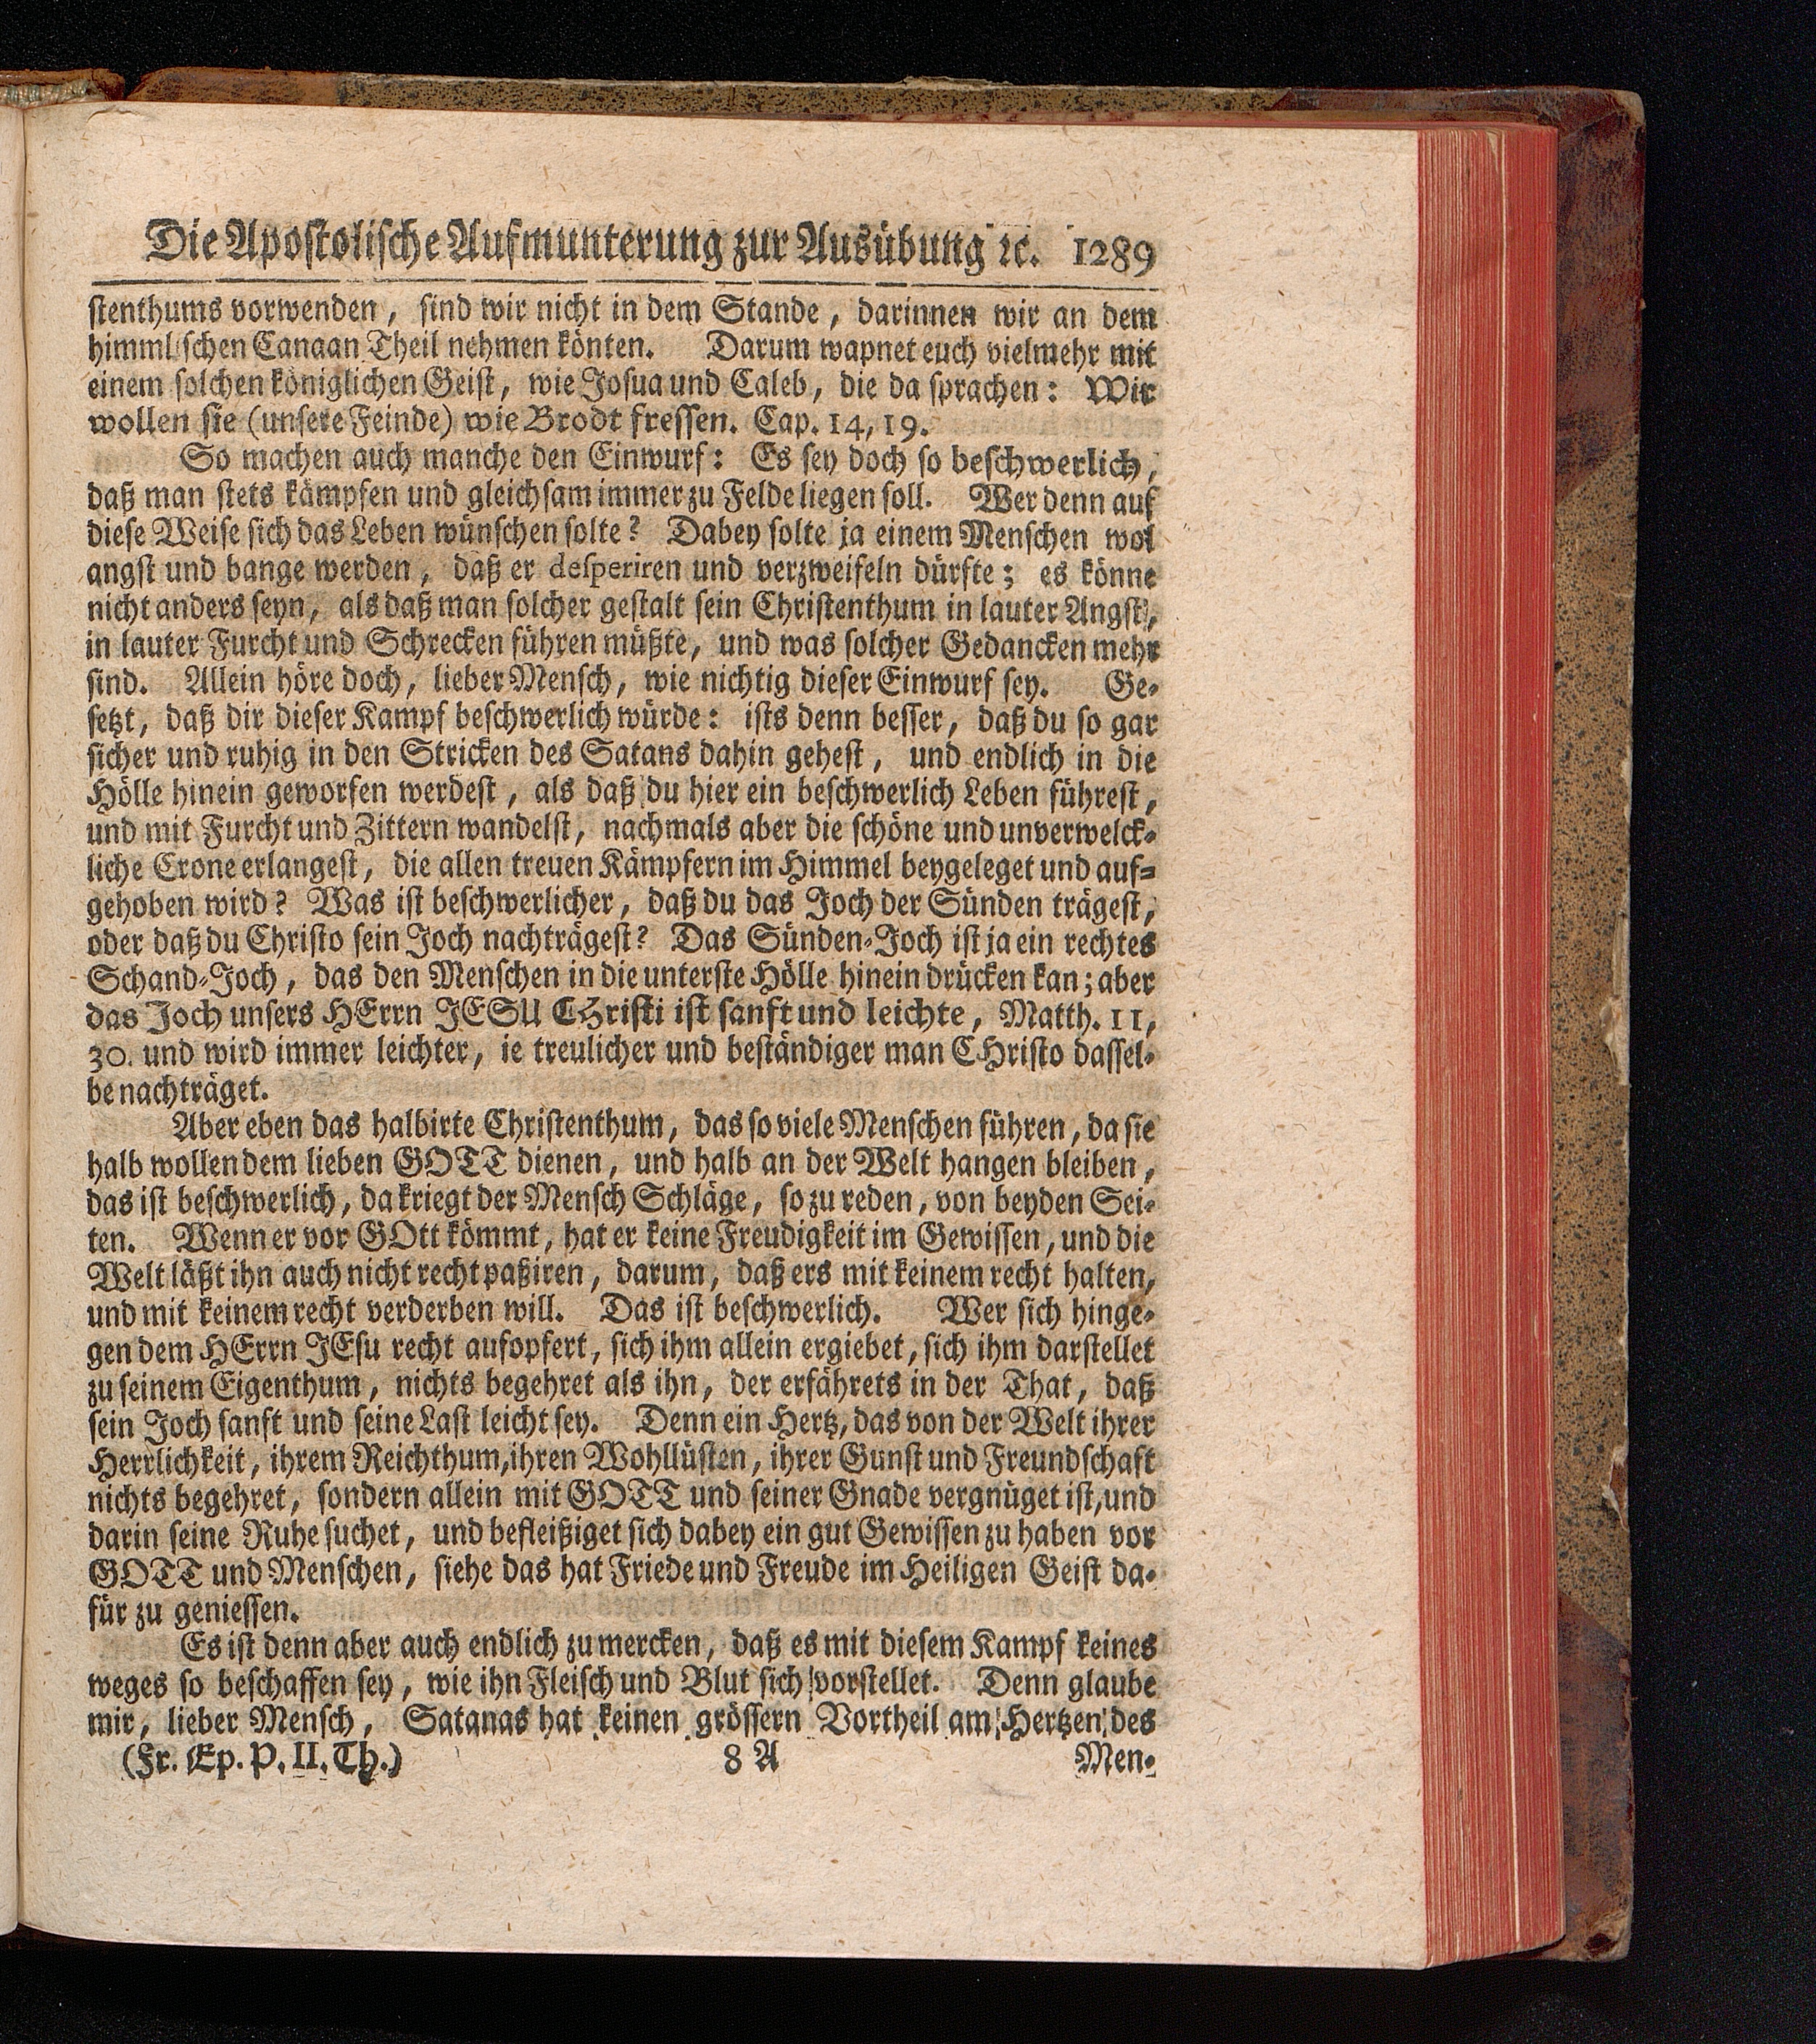 Die Apostolische Aufmunterung zur Ausübung ꝛc. 1289
stenthums vorwenden, sind wir nicht in dem Stande, darinnen wir an dem
himmlischen Canaan Theil nehmen könten. Darum wapnet euch vielmehr mit
einem solchen königlichen Geist, wie Josua und Caleb, die da sprachen: Wir
wollen sie (unsere Feinde) wie Brodt fressen. Cap. 14, 19.
So machen auch manche den Einwurf: Es sey doch so beschwerlich,
daß man stets kämpfen und gleichsam immer zu Felde liegen soll. Wer denn auf
diese Weise sich das Leben wünschen solte? Dabey solte ja einem Menschen wol
angst und bange werden, daß er desperiren und verzweifeln dürfte; es könne
nicht anders seyn, als daß man solcher gestalt sein Christenthum in lauter Angst,
in lauter Furcht und Schrecken führen müßte, und was solcher Gedancken mehr
sind. Allein höre doch, lieber Mensch, wie nichtig dieser Einwurf sey. Ge-
setzt, daß dir dieser Kampf beschwerlich würde: ists denn besser, daß du so gar
sicher und ruhig in den Stricken des Satans dahin gehest, und endlich in die
Hölle hinein geworfen werdest, als daß du hier ein beschwerlich Leben führest,
und mit Furcht und Zittern wandelst, nachmals aber die schöne und unverwelck-
liche Crone erlangest, die allen treuen Kämpfern im Himmel beygeleget und auf-
gehoben wird? Was ist beschwerlicher, daß du das Joch der Sünden trägest,
oder daß du Christo sein Joch nachträgest? Das Sünden-Joch ist ja ein rechtes
Schand-Joch, das den Menschen in die unterste Hölle hinein drücken kan; aber
das Joch unsers HErrn JESU CHristi ist sanft und leichte, Matth. 11,
30. und wird immer leichter, ie treulicher und beständiger man CHristo dassel-
be nachträget.
Aber eben das halbirte Christenthum, das so viele Menschen führen, da sie
halb wollen dem lieben GOTT dienen, und halb an der Welt hangen bleiben,
das ist beschwerlich, da kriegt der Mensch Schläge, so zu reden, von beyden Sei-
ten. Wenn er vor GOtt kömmt, hat er keine Freudigkeit im Gewissen, und die
Welt läßt ihn auch nicht recht paßiren, darum, daß ers mit keinem recht halten,
und mit keinem recht verderben will. Das ist beschwerlich. Wer sich hinge-
gen dem HErrn JEsu recht aufopfert, sich ihm allein ergiebet, sich ihm darstellet
zu seinem Eigenthum, nichts begehret als ihn, der erfährets in der That, daß
sein Joch sanft und seine Last leicht sey. Denn ein Hertz, das von der Welt ihrer
Herrlichkeit, ihrem Reichthum, ihren Wohllüsten, ihrer Gunst und Freundschaft
nichts begehret, sondern allein mit GOTT und seiner Gnade vergnüget ist, und
darin seine Ruhe suchet, und befleißiget sich dabey ein gut Gewissen zu haben vor
GOTT und Menschen, siehe das hat Friede und Freude im Heiligen Geist da-
für zu geniessen.
Es ist denn aber auch endlich zu mercken, daß es mit diesem Kampf keines
weges so beschaffen sey, wie ihn Fleisch und Blut sich vorstellet. Denn glaube
mir, lieber Mensch, Satanas hat keinen grössern Vortheil am Hertzen des
(Fr. Ep. P. II. Th.) 8 A Men-